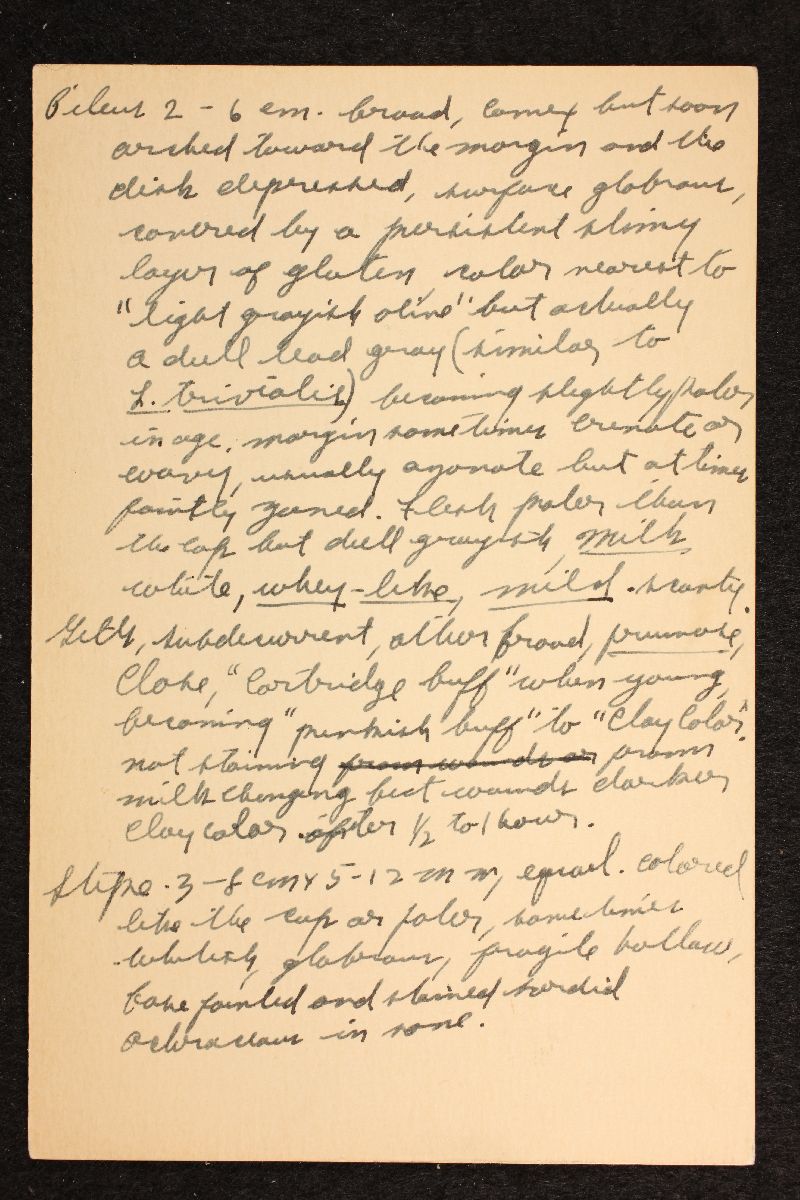 Pileus 2 - 6 cm. broad, convex but soon
arched toward the margin and the
disk depressed, surface glabrous,
covered by a persistent slimy
layer of gluten, color nearest to
"light grayish olive" but actually
a dull lead gray (similar to
L. trivialis) becoming slightly paler
in age. margin sometimes crenate or
wavy, usually azonate but at times
faintly zoned. Flesh paler than
the cap but dull grayish, milk
white, whey-like, mild. scanty.
Gills, subdecurrent, rather broad, pruinose,
Close, "Cartridge buff" when young,
becoming "pinkish buff" to "Clay Color".
not staining from wounds or from
milk changing but wounds darker
Clay color after 1/2 to 1 hour.
Stipe. 3 - 8 cm x 5 - 12 mm, equal. colored
like the cap or paler, sometimes
whitish, glabrous, fragile hollow,
base pointed and stained sordid
ochraceous in some.